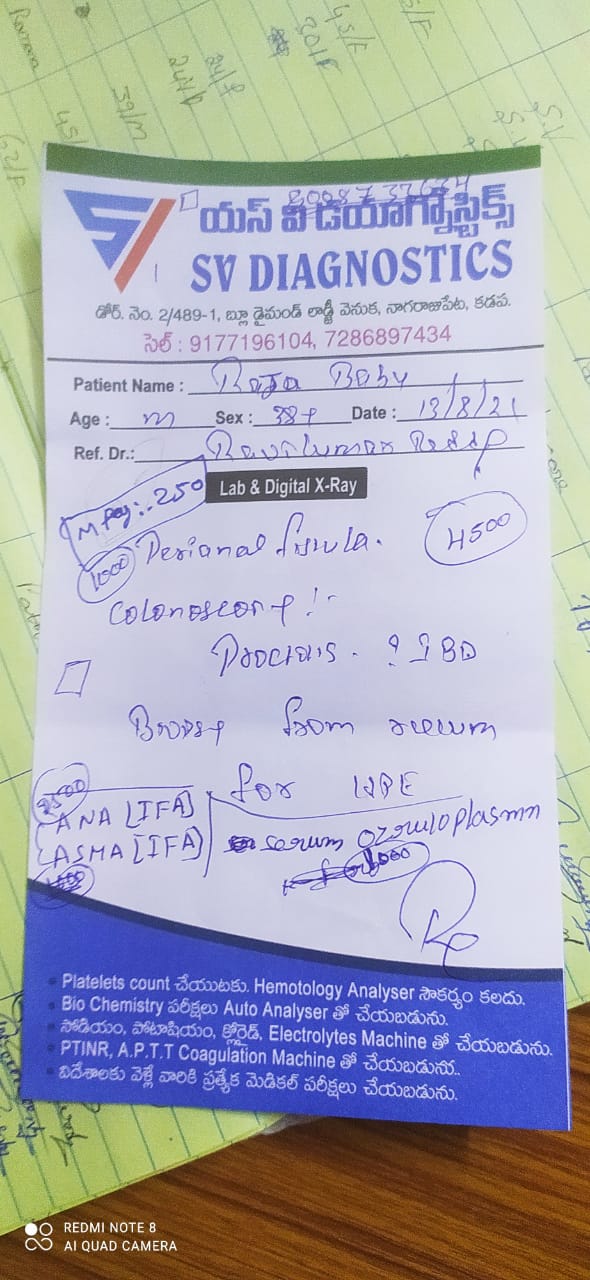 4S/F
30/F
24/f
24/F
39/M
62/F
S.V
8008737634
యస్ వి డయాగ్నోస్టిక్స్
SV DIAGNOSTICS
డోర్. నెం. 2/489-1, బ్లూ డైమండ్ లాడ్జీ వెనుక, నాగరాజుపేట, కడప.
సెల్ : 9177196104, 7286897434
Patient Name : Raja Baby
Age : m Sex : 38 f Date : 13/8/21
Ref. Dr.: Ravikumar Reddy
Lab & Digital X-Ray
M Pay:- 250
4500
1000
Perianal fistula.
Colonoscopy :-
Proctitis - ? IBD
Biopsy from rectum
for HPE
2500
ANA [IFA]
ASMA [IFA]
serum ceruloplasmn
1000
Platelets count చేయుటకు. Hemotology Analyser సౌకర్యం కలదు.
Bio Chemistry పరీక్షలు Auto Analyser తో చేయబడును.
సోడియం, పొటాషియం, క్లోరైడ్, Electrolytes Machine తో చేయబడును.
PTINR, A.P.T.T Coagulation Machine తో చేయబడును..
విదేశాలకు వెళ్లే వారికి ప్రత్యేక మెడికల్ పరీక్షలు చేయబడును.
REDMI NOTE 8
AI QUAD CAMERA